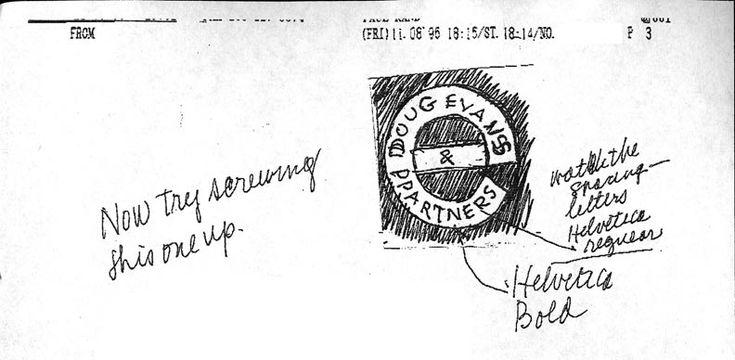 FROM
(FRI)11. 08' 96 18:15/ST. 18:14/NO.
P 3
DOUG EVANS
&
PARTNERS
Now try screwing
this one up.
watch the
spacing—
letters
Helvetica
regular
Helvetica
Bold